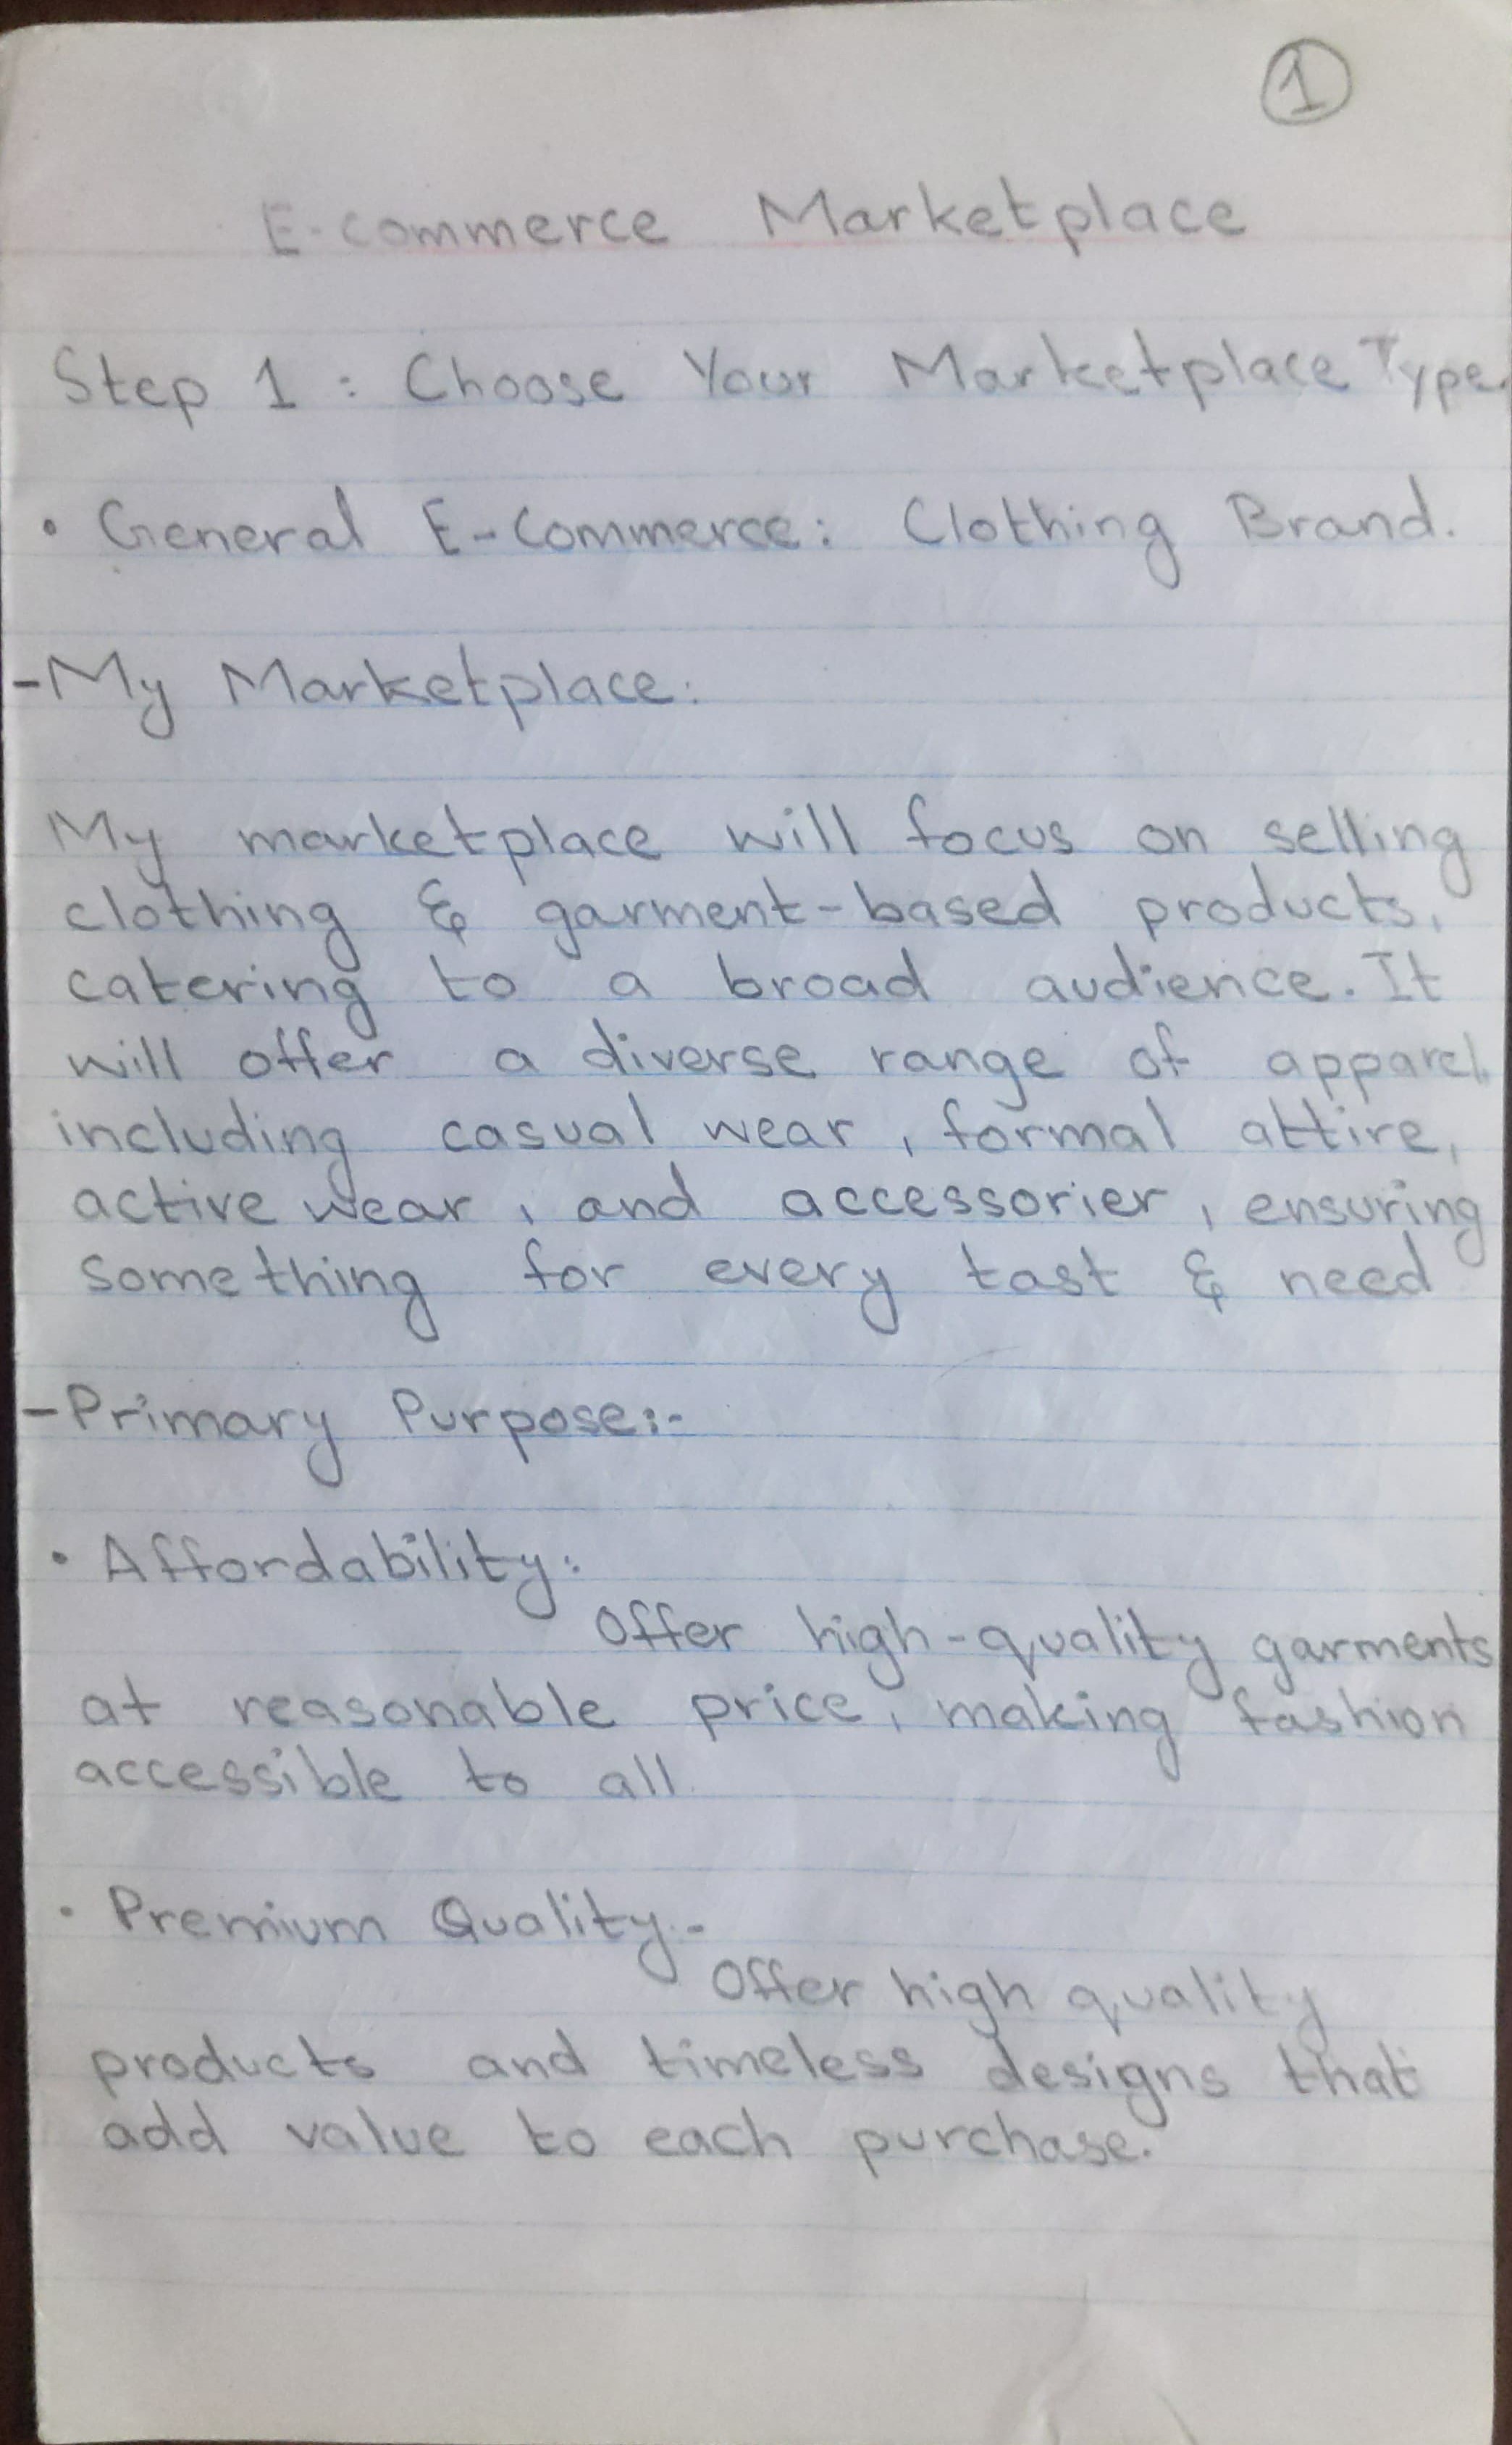 1
E-commerce Marketplace
Step 1 : Choose Your Marketplace Type.
• General E-Commerce: Clothing Brand.
- My Marketplace:
My marketplace will focus on selling
clothing & garment-based products,
catering to a broad audience. It
will offer a diverse range of apparel,
including casual wear, formal attire,
active wear, and accessorier, ensuring
something for every tast & need
- Primary Purpose:-
• Affordability:
Offer high-quality garments
at reasonable price, making fashion
accessible to all.
• Premium Quality:-
Offer high quality
products and timeless designs that
add value to each purchase.